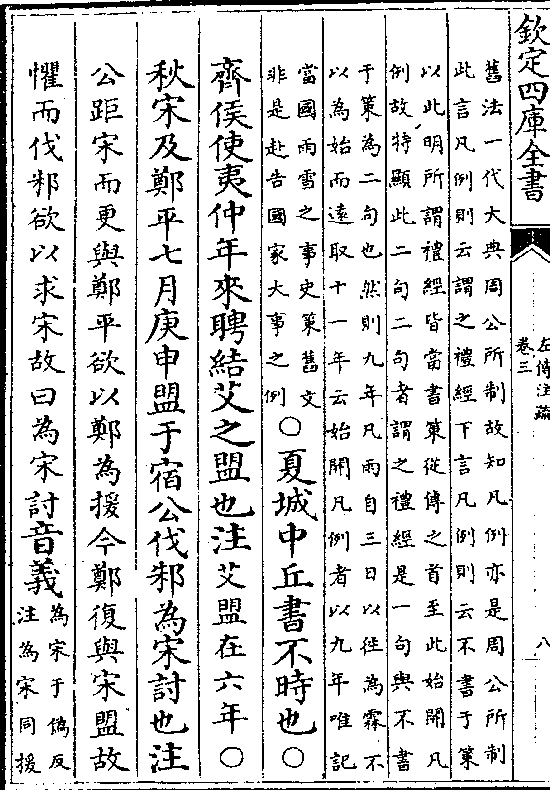 欽定四庫全書
左傳注疏
卷三
八
舊法一代大典周公所制故知凡例亦是周公所制
此言凡例則云謂之禮經下言凡例則云不書于策
以此明所謂禮經皆當書策從傳之首至此始開凡
例故特顯此二句二句者謂之禮經是一句與不書
于策為二句也然則九年凡雨自三日以徃為霖不
以為始而遠取十一年云始開凡例者以九年唯記
當國雨雪之事史策舊文
非是赴告國家大事之例
○夏城中丘書不時也○
齊侯使夷仲年來聘結艾之盟也注艾盟在六年○
秋宋及鄭平七月庚申盟于宿公伐邾為宋討也注
公距宋而更與鄭平欲以鄭為援今鄭復與宋盟故
懼而伐邾欲以求宋故曰為宋討音義
為宋于偽反
注為宋同援